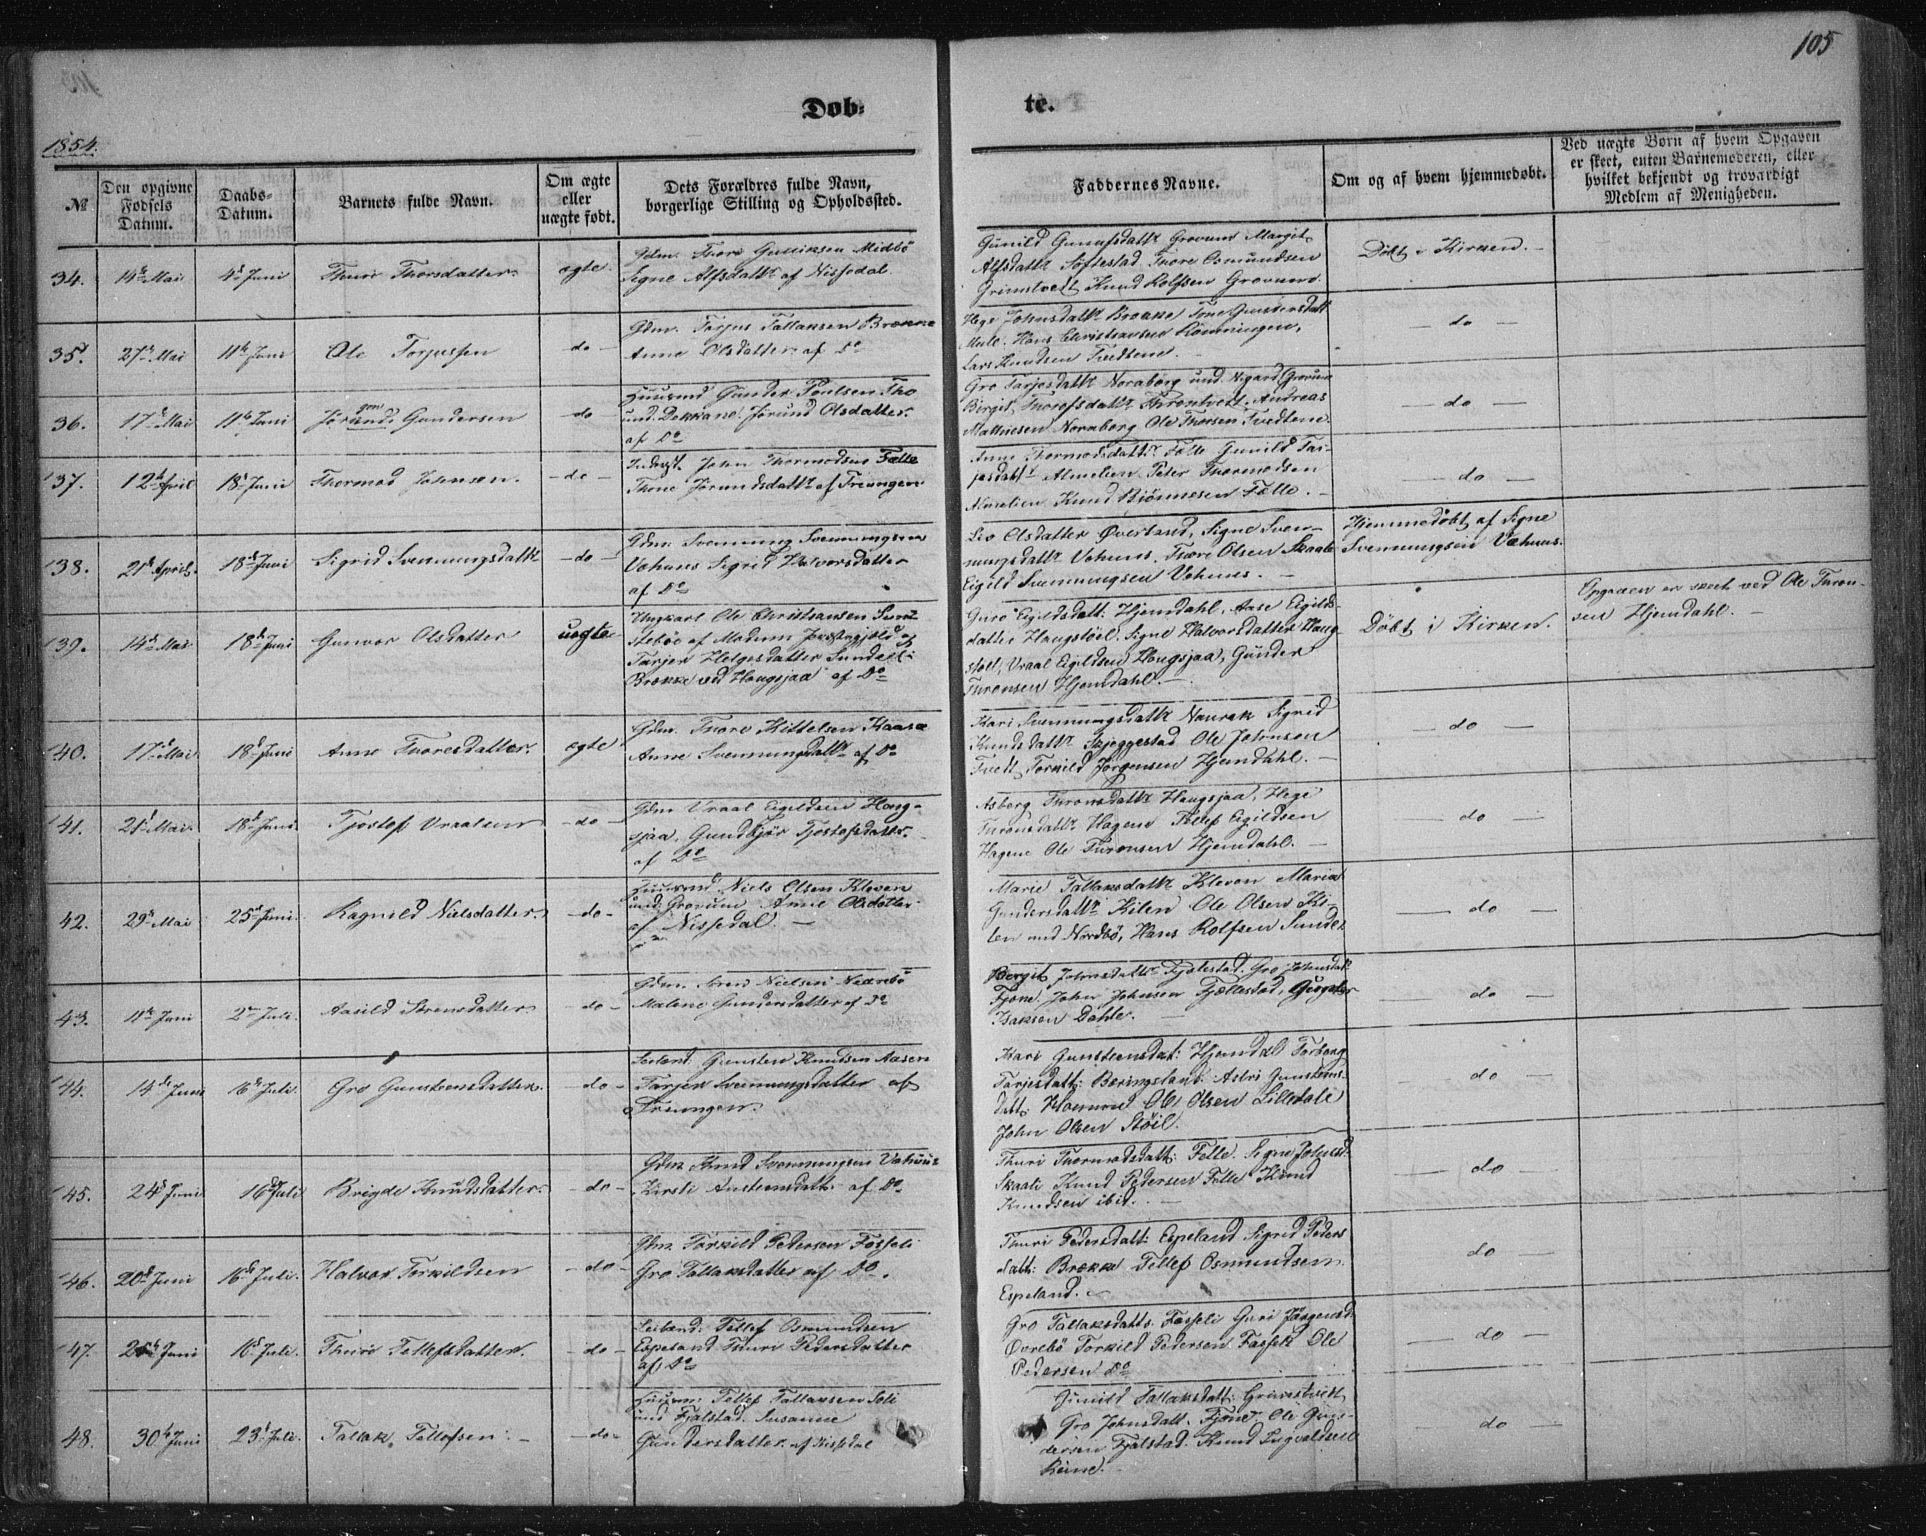 105
Døb-
te.
1854.
№
Den opgivne
Fødsels
Datum.
Daabs-
Datum.
Barnets fulde Navn.
Om ægte
eller
uægte født.
Dets Forældres fulde Navn,
borgerlige Stilling og Opholdssted.
Faddernes Navne.
Om og af hvem hjemmedøbt.
Ved uægte Børn af hvem Opgaven
er skeet, enten Barnemoderen, eller
hvilket bekjendt og troværdigt
Medlem af Menigheden.
34.
14de Mai
4de Juni
Thuri Thorsdatter.
ægte.
Gdm. Thore Gulliksen Midbö
Signe Alfsdattr af Nissedal.
Gunild Gunufsdattr Grovum Margit
Alfsdattr Søftestad. Thore Osmundsen
Grimstvedt Knud Rolfsen Grovum.
Döbt i Kirken.
35.
27de Mai
11te Juni
Ole Torjussen
do
Gdm. Torjus Tallaksen Brække
Anne Olsdatter: af Do
Hege Johnsdattr Brække Tone Gunstensdatt
Mule. Hans Christiansen Rönningen,
Lars Knudsen Tvedtene.
do
36.
17de Mai
11te Juni
Jörund Gundersen
do
Huusmd Gunder Poulsen Tho
und. Dekkane. Jorund Olsdatter.
af Do
Gro Tarjesdattr Noraborg und. Nigard Grovum
Birgit Thorofsdattr Throntvett. Andreas
Mathiesen Noraborg Ole Thorsen Tvedtene.
do
37.
12te April
18de Juni
Thormod Johnsen.
do
Inderst. John Thormodsen Fælle
Thone Jörundsdattr af Treungen
Anne Thormodsdattr Fælle Gunild Tar-
jesdattr Almelien. Peter Thormodsen
Almelien Knud Björnnesen Fælle.
do
38.
21de April.
18de Juni
Sigrid Svenungsdattr
do
Gdm. Svennung Svennungsen
Vehuus Sigrid Halvorsdatter
af Do
Liv Olsdatter Øverland, Signe Sven-
nungsdattr Vehuus. Thore Olsen Skaale
Eigild Svennungsen Vehuus.
Hjemmedöbt af Signe
Svennungsen Væhuus.
39.
14de Mai
18de Juni
Gunvor Olsdatter
uægte
Ungkarl Ole Christiansen
Tarjer Helgesdatter
Brække ved Haugsjaa af Do
Guro Eigildsdatt: Hjemdahl, Aase Eigilds-
datter Haugstöel. Signe Halvorsdatter Haug-
stöel, Vraal Eigildsen Haugsjaa, Gunder
Turonsen Hjemdahl.
Döbt i Kirken.
Opgaven er skeet ved Ole Turon-
sen Hjemdahl.
40.
17de Mai
18de Juni
Anne Thoresdatter.
ægte
Gdm. Thore Kittelsen Kaasa
Anne Svennungsdattr af Do
Kari Svennungsdattr Naurak Sigrid
Knudsdattr Skjeggestad Ole Johnsen
Tvedt Torkild Jörgensen Hjemdahl.
do
41.
21de Mai
18de Juni
Tjostof Vraalsen
do
Gdm Vraal Eigildsen Haug-
sjaa. Gundbjör Tjostofsdatter.
af Do
Asberg Turonsdattr Haugsjaa, Hege
Turonsdattr Hagene Tellef Eigildsen
Hagene Ole Turonsen Hjemdahl.
do
42.
29de Mai
25de Juni
Ragnild Nielsdatter
do
Huusmd Niels Olsen Kleven
und. Grovum Anne Olsdatter
af Nissedal.
Marie Tallaksdattr Kleven Maria
Gundersdattr Kilen Ole Olsen Ki-
len und Nordbö, Hans Rolfsen Sundet
do
43.
11te Juni
2den Juli.
Aasild Sörensdatter
do
Gdm. Sören Nielsen Nærebö
Malene Gundersdatter af Do
Bergit Johnsdattr Fjelestad. Gro Johnsdatt
Fjone. John Johnsen Fjellestad,
Isaksen Dahle.
do
44.
14de Juni
16de Juli.
Gro Gunsteensdatter.
do
Leiland: Gunsten Knudsen Aasen
Tarjer Svennungsdatter af
Treungen.
Kari Gunsteensdat: Hjemdal Torborg
Tarjesdatt: Bæringsland. Astri Gunsteens-
datt: Ole Olsen Lilledale
John Olsen Stöil.
do
45.
24de Juni
16de Juli
Brigde Knudsdatter.
do
Gdm. Knud Svennungsen Vehuus
Kirsti Austensdatt. af Do
Thuri Thormodsdatt: Felle. Signe Johnsd:
Skaali Knud Pedersen Felle Knud
Knudsen ibid.
do
46.
20de Juni
16de Juli.
Halvor Torkildsen
do
Gdm. Torkild Pedersen Fosseli
Gro Tallaksdatter af Do.
Thuri Pedersdatt: Espeland Sigrid Peders
datt: Brække Tellef Osmundsen
Espeland.
do
47.
Juni
16de Juli.
Thuri Tellefsdatter.
do
Leilænd: Tellef Osmundsen
Espeland Thuri Pedersdatter
af Do
Gro Tallaksdatt. Fosseli Guri Jörgensd:
Övrebö Torkild Pedersen Fosseli Ole
Pedersen Do
do
48.
30te Juni
23de Juli.
Tallak Tellefsen.
do
Huusm: Tellef Tallaksen Soli
und Fjalstad. Susanne
Gundersdatter af Nissedal
Gunild Tallaksdatt: Grimstvedt
Gro Johnsdatt. Fjone. Ole Gun-
dersen Fjalstad. Knud Ingvaldsen
Reine.
do